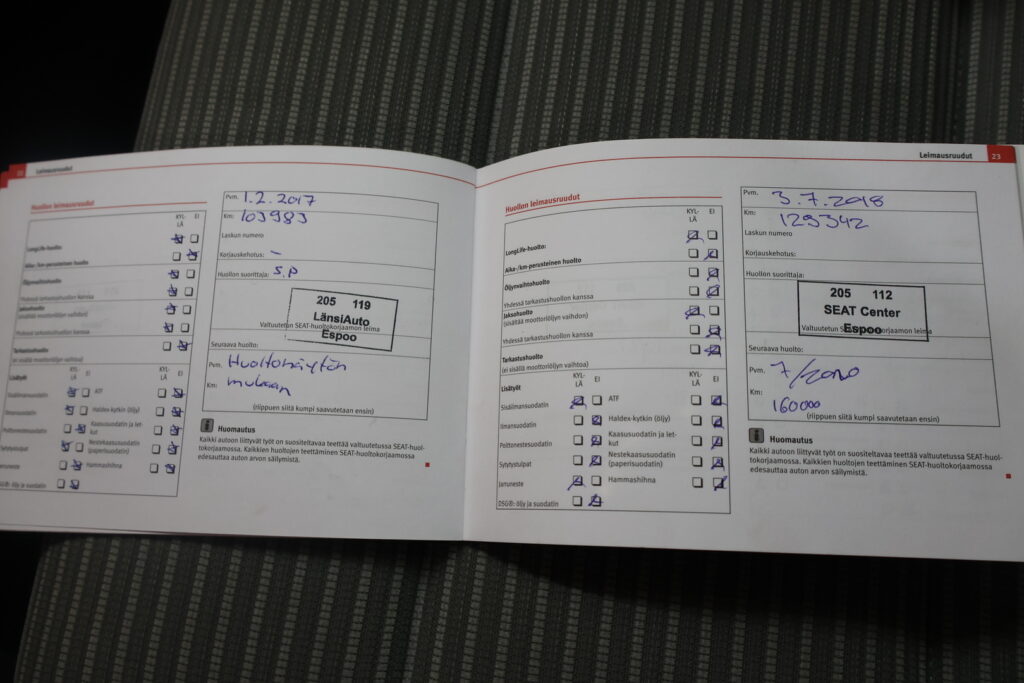 Leimausruudut
Huollon leimausruudut
KYL-
LÄ
EI
LongLife-huolto:
Aika-/km-perusteinen huolto
Öljynvaihtohuolto
Yhdessä tarkastushuollon kanssa
Jaksohuolto
(sisältää moottoriöljyn vaihdon)
Yhdessä tarkastushuollon kanssa
Tarkastushuolto
(ei sisällä moottoriöljyn vaihtoa)
Lisätyöt
KYL-
LÄ
EI
KYL-
LÄ
EI
Sisäilmansuodatin
ATF
Ilmansuodatin
Haldex-kytkin (öljy)
Polttonestesuodatin
Kaasusuodatin ja let-
kut
Sytytystulpat
Nestekaasusuodatin
(paperisuodatin)
Jarruneste
Hammashihna
DSG®: öljy ja suodatin
Pvm. 1.2.2017
Km: 103983
Laskun numero
Korjauskehotus: -
Huollon suorittaja: S.P
205 119
LänsiAuto
Espoo
Valtuutetun SEAT-huoltokorjaamon leima
Seuraava huolto:
Pvm. Huoltonäytön
Km: mukaan
(riippuen siitä kumpi saavutetaan ensin)
Huomautus
Kaikki autoon liittyvät työt on suositeltavaa teettää valtuutetussa SEAT-huol-
tokorjaamossa. Kaikkien huoltojen teettäminen SEAT-huoltokorjaamossa
edesauttaa auton arvon säilymistä.
Leimausruudut 23
Huollon leimausruudut
KYL-
LÄ
EI
LongLife-huolto:
Aika-/km-perusteinen huolto
Öljynvaihtohuolto
Yhdessä tarkastushuollon kanssa
Jaksohuolto
(sisältää moottoriöljyn vaihdon)
Yhdessä tarkastushuollon kanssa
Tarkastushuolto
(ei sisällä moottoriöljyn vaihtoa)
Lisätyöt
KYL-
LÄ
EI
KYL-
LÄ
EI
Sisäilmansuodatin
ATF
Ilmansuodatin
Haldex-kytkin (öljy)
Polttonestesuodatin
Kaasusuodatin ja let-
kut
Sytytystulpat
Nestekaasusuodatin
(paperisuodatin)
Jarruneste
Hammashihna
DSG®: öljy ja suodatin
Pvm. 3.7.2018
Km: 129342
Laskun numero
Korjauskehotus:
Huollon suorittaja:
205 112
SEAT Center
Espoo
Valtuutetun SEAT-huoltokorjaamon leima
Seuraava huolto:
Pvm. 7/2020
Km: 160000
(riippuen siitä kumpi saavutetaan ensin)
Huomautus
Kaikki autoon liittyvät työt on suositeltavaa teettää valtuutetussa SEAT-huol-
tokorjaamossa. Kaikkien huoltojen teettäminen SEAT-huoltokorjaamossa
edesauttaa auton arvon säilymistä.